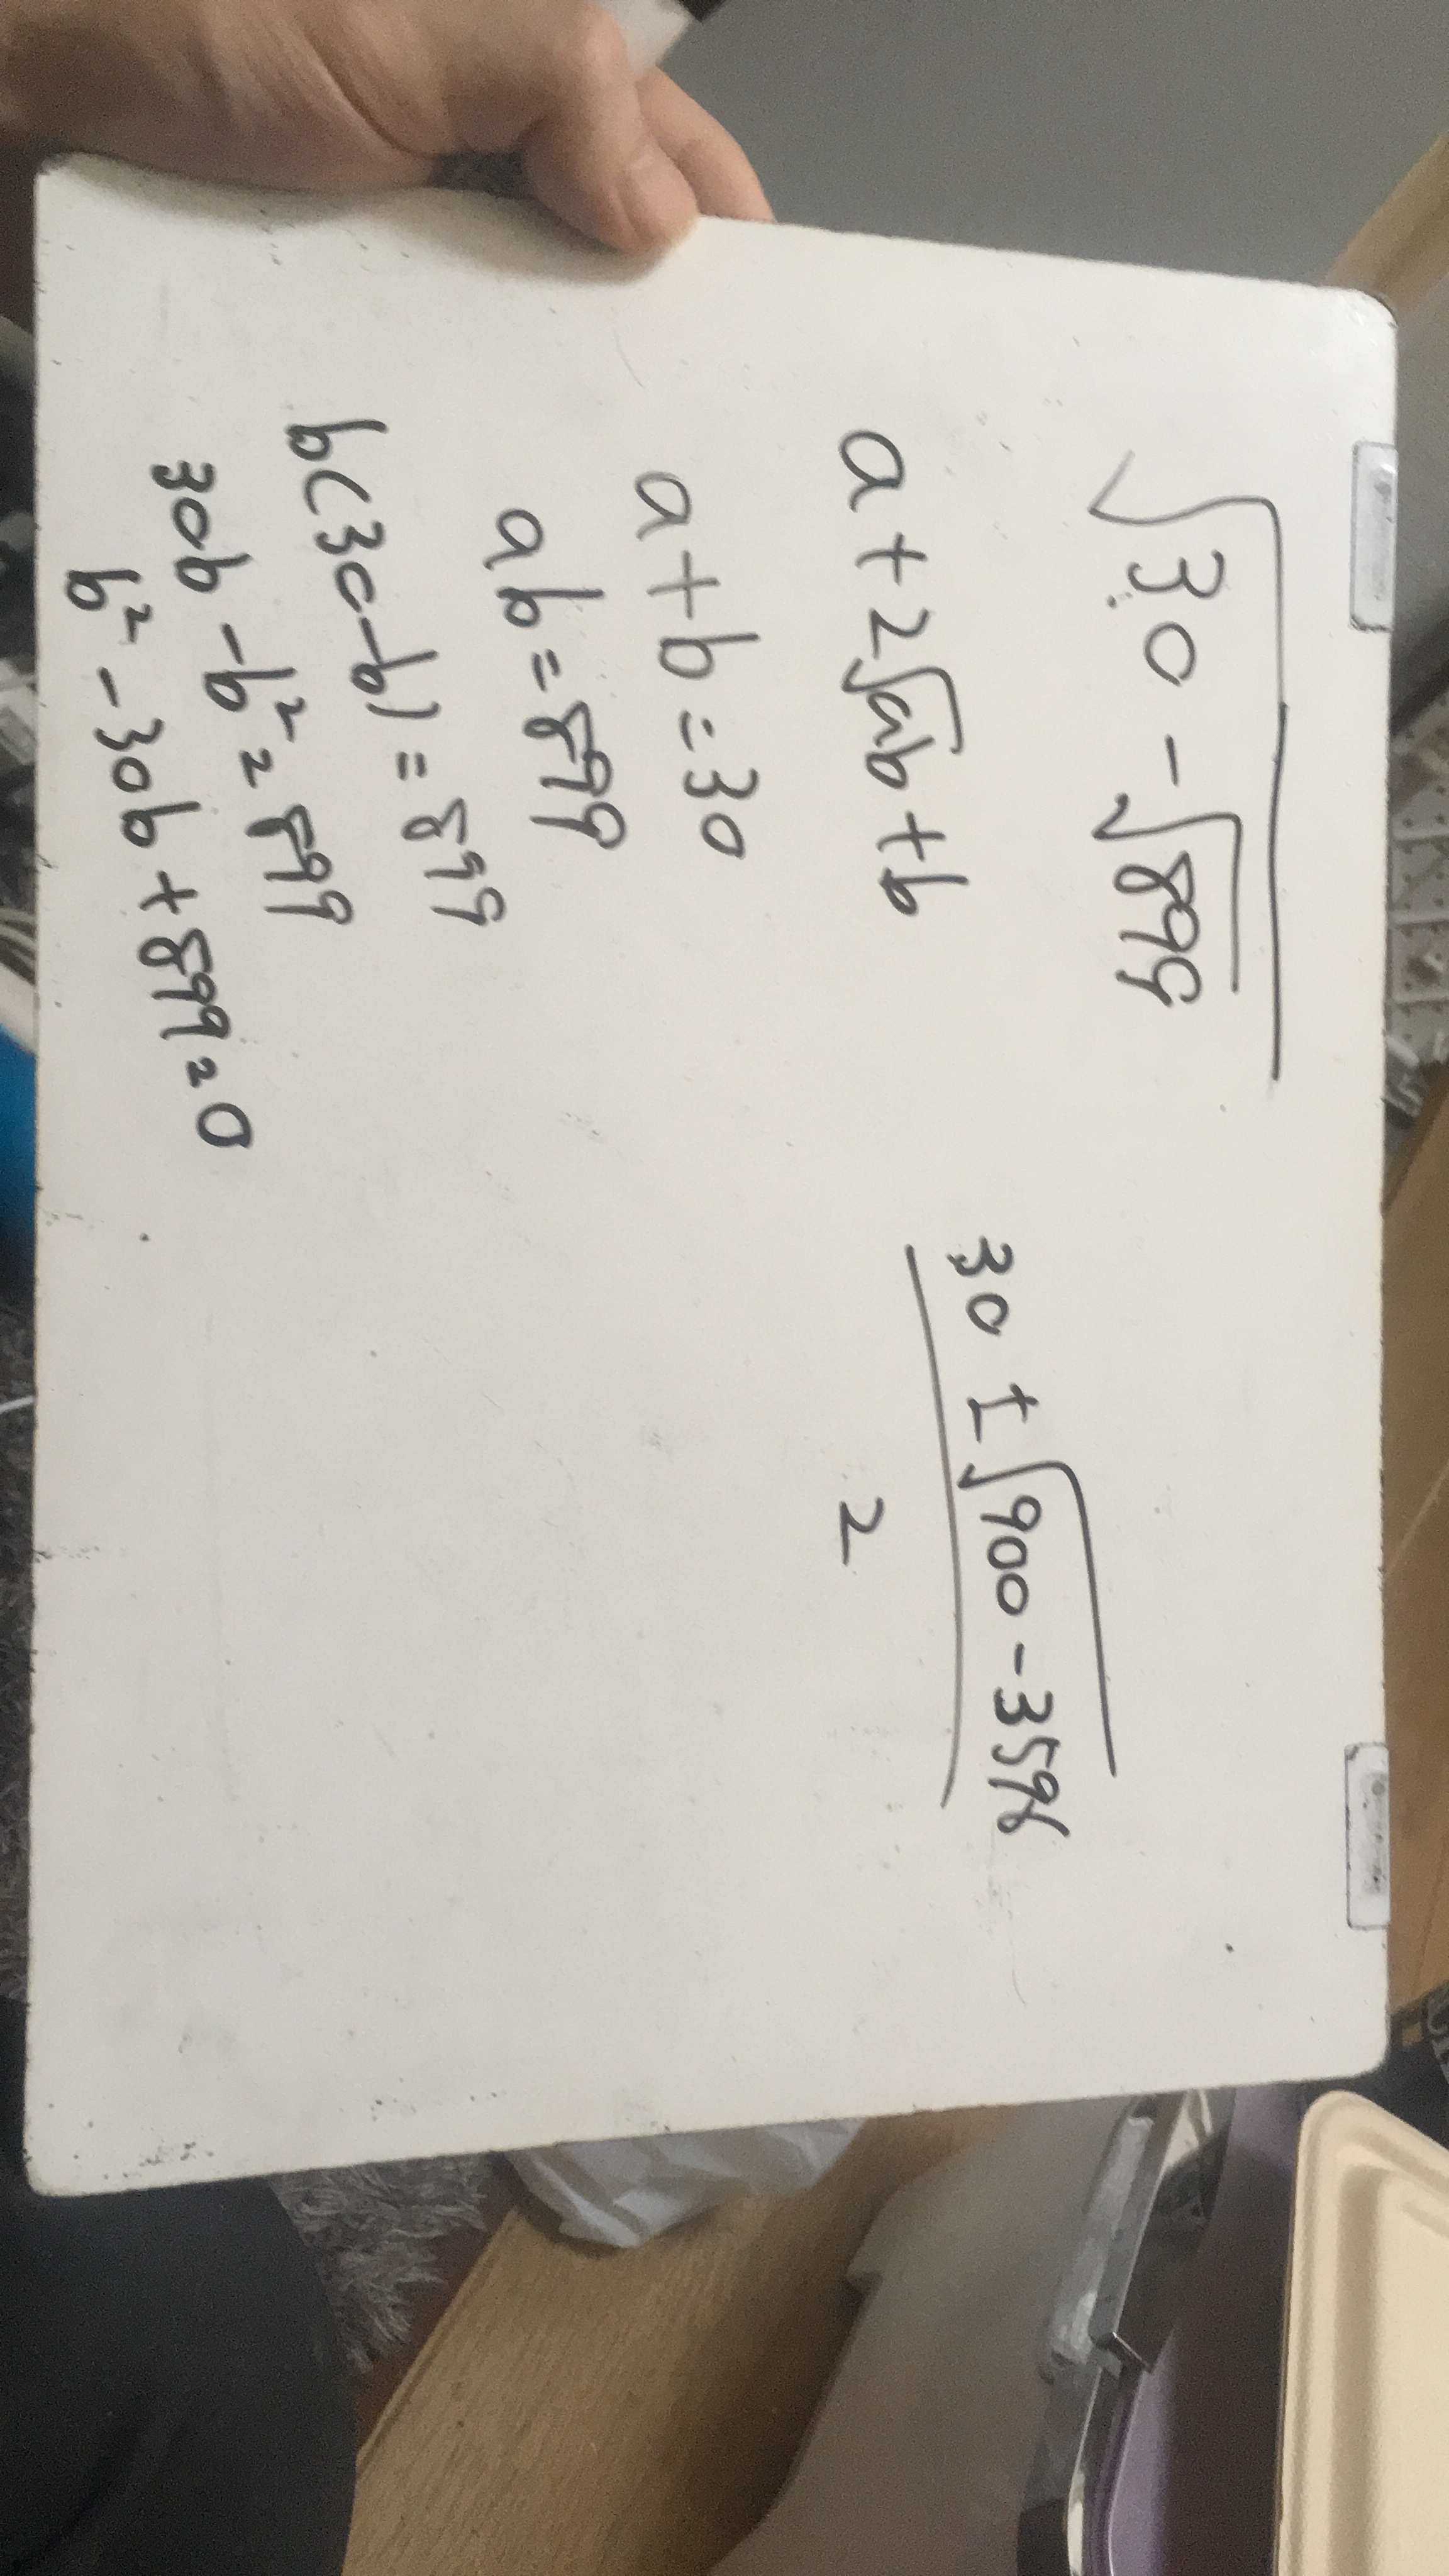 √(30 - √899)
a + 2√ab + b
a + b = 30
ab = 899
b(30-b) = 899
30b - b² = 899
b² - 30b + 899 = 0
30 ± √(900 - 3596)
2